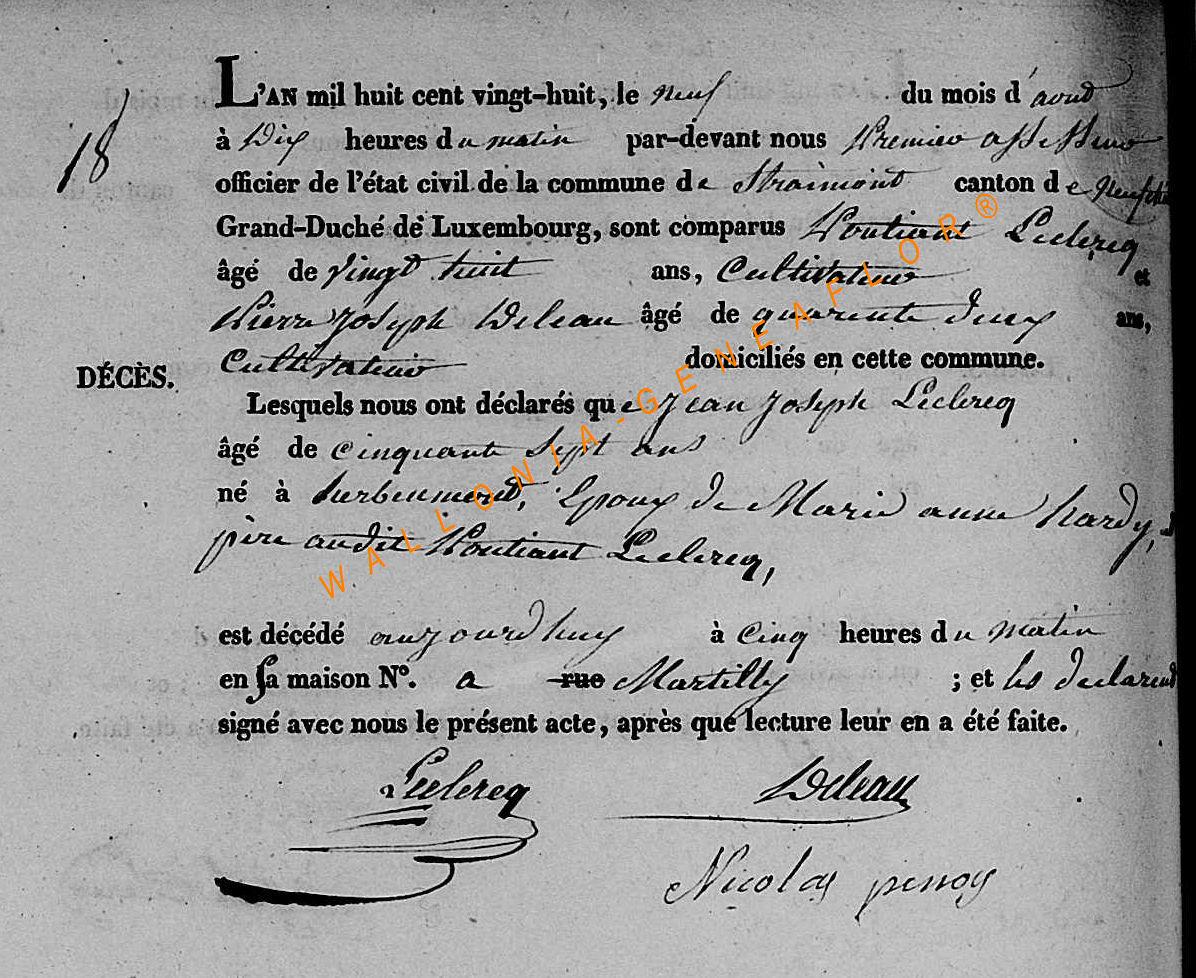 18
L'AN mil huit cent vingt-huit, le neuf du mois d'aout
à Dix heures du matin par-devant nous Premier assesseur
officier de l'état civil de la commune de Straimont canton de Neufchâ
Grand-Duché de Luxembourg, sont comparus Pontiant Leclercq
âgé de vingt huit ans, Cultivateur et
Pierre Joseph Deleau âgé de quarente deux ans,
Cultivateur domiciliés en cette commune.
DÉCÈS.
Lesquels nous ont déclarés que Jean Joseph Leclercq
âgé de cinquante Sept ans
né à herbeumont, Epoux de Marie anne hardy,
père audit Pontiant Leclercq,
est décédé aujourdhuy à Cinq heures du matin
en sa maison N°. a rue Martilly ; et les declarent
signé avec nous le présent acte, après que lecture leur en a été faite.
Leclercq Deleau
Nicolas
WALLONIA-GENEAFLOR®